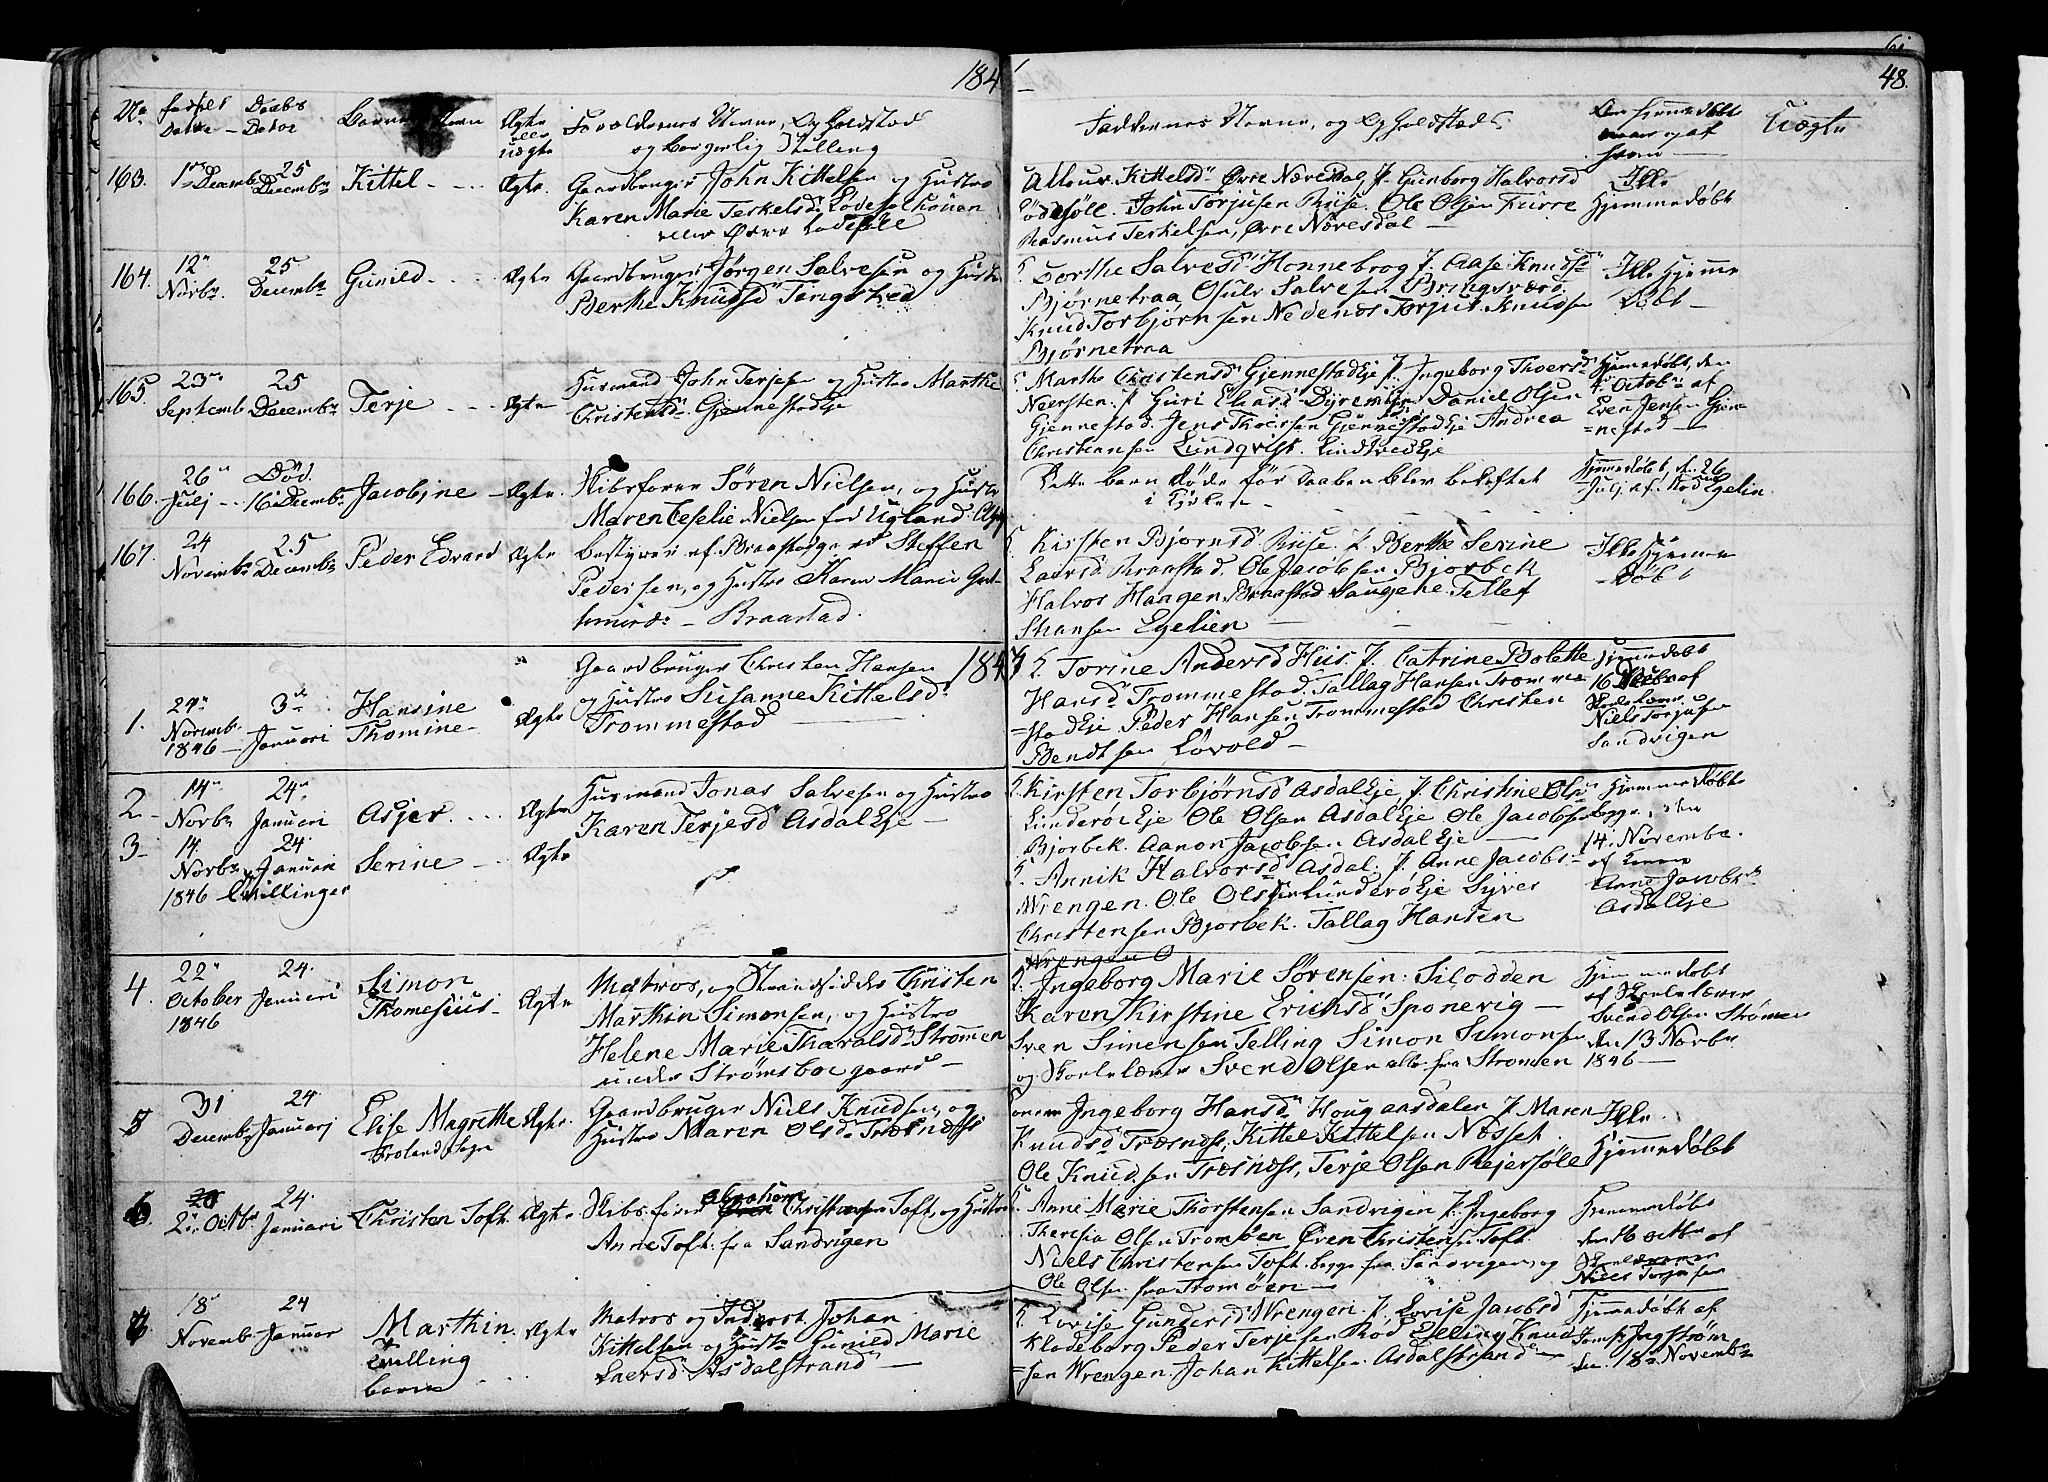 184
48.
No Fødsels Daabs Barnets Navn Ægte Forældrenes Navne, Og Opholdstæd Faddernes Navne, og Opholdstæd Om hjemmedøbt Uægte
Datoe – Datoe eller uægte og borgerlig Stilling naar og af hvem
163. 1ste Decemb 25 Decembr Kittel Ægte. Gaardbruger John Kittelsen og Hustro
Karen Marie Terkelsd. Lødesøl
eller Øvre Lødesøl
Kittelsd Øvre Næresdal J. Gunborg Halvorsd
Lødesøll. John Torjusen Riise. Ole Olsen Furre
Rasmus Terkelsen, Øvre Næresdal –
Ikke
Hjemmedøbt
164. 12 Novbr. 25 Decembr Gunild Ægte Gaardbruger Jørgen Salvesen og Hustro
Berthe Knudsd Tangstred
Dorthe Salvesd Honnebrog J. Aase Knudsd
Bjørnetraa, Osulv Salvesen Bringsværd
Knud Torbjørnsen Nedenæs Torjus Knudsen
Bjørnetraa
Ikke Hjemme
Døbt –
165. 23 Septemb 25 Decembr Terje Ægte Husmand John Terjesen og Hustro Marthe
Christensd Gjennestadeje
Marthe Christensd Gjennestadeje J. Ingeborg Thorsd
Neersten. J. Guri Daniel Olsen
Gjennestad. Jens Gjennestadeje Andrea
Christiansen Lundqvist. Lindtvedeje
Hjemmedøbt, den
4 Octob af
Even Jensen Gjen
=nestad
166. 26 Julj 16 Decembr Død. Jacobine Ægte. Skibsfører Søren Nielsen, og Hustro
Maren Cecelie Nielsen fød Ugland.
Dette barn døde før Daaben blev bekræftet
i Kirken –
Hjemmedøbt, d. 26
Julj af Egelin.
167. 24 Novembr 25 Decembr Peder Edvard Ægte. bestyrer af Braastad Steffen
Pedersen, og Hustro Karen Marie Gut-
– Braastad.
Kirsten Bjørnsd Riise. J. Berthe Serine
Laersd Braastad. Ole Jacobsen Bjorbek
Halvor Hangen, Braastad Saugeje. Tellef
Egelien
Ikke Hjemme
Døbt
1847
1. 24 Novemb. 1846 3de Januari Hansine Thomine Ægte Gaardbruger Christen Hansen
og Hustro Susanne Kittelsd.
Trommestad
Torine Andersd Hiis. J. Catrine Bolette
Hansd Trommestad. Tallag Hansen Tromme
=stadeje Peder Hansen Trommestad Christen
Bendtsen Løvold –
Hjemmedøbt
16 af
Niels Torjusen
Sandvigen
2 – 14 Novbr 24 Januari Asjer Ægte Husmand Jonas Salvesen og Hustro
Karen Terjesd Asdaleje –
Kirsten Torbjørnsd Asdaleje J. Christine Ols
Lunderøeje Ole Olsen Asdaleje Ole Jacobsen
Bjorbek. Aanon Jacobsen Asdaleje –
Hjemmedøbt
begge, den
14. November.
3 – 14. Novbr 1846 24. Januari Tvillinger Serine Ægte
Annik Halvorsd Asdal. J. Anne Jacobs
Wrengen. Ole Olsen Lunderøeje Syver
Christensen Bjorbek. Tallag Hansen
Wrengen
af
Anne Jacobs
Asdaleje
4. 22 October 1846 24. Januari Simon Thomesius Ægte Matros, og Strandsidder Christen
Marthin Simonsen, og Hustro
Helene Marie Tharalsd Strømmen
under Strømsboe gaard –
Ingeborg Marie Sørensen: Silodden
Karen Kirstine Ericksd Sponevig –
Sven Simensen Telling Simon Simonsen
og Skolelærer Svend Olsen alle fra Strømen
Hjemmedøbt
af Skolelærer
Svend Olsen Strømen
den 13 Novbr
1846 –
5 31 Decembr 24. Januarj Elise Magrethe Froland Sogn Ægte. Gaardbruger Niels Knudsen, og
Hustro Maren Olsd. Træsnæss
Ingeborg Hansd Hougaasdalen J. Maren
Knudsd Træsnæss, Kittel Kittelsen Næsset.
Ole Knudsen Træsnæss, Terje Olsen Rejersøle
Ikke
Hjemmedøbt
6. 2. Octbr 24. Januari Christen Toft. Ægte Skibsfører Abraham Christensen Toft, og Hustro
Anne Toft. fra Sandvigen
Anne Marie Thorstensen Sandvigen J. Ingeborg
Theresia Olsen Tromøen Øven Christensen Toft
Niels Christensen Toft. begge fra Sandvigen, og
Ole Olsen fra Tromøen –
Hjemmedøbt
den 16 Octbr af
Skolelærer
Niels Torjusen
7. 18 Novemb. 24 Januar Marthin Tvilling barn Ægte Matros og Inderst Johan
Kittelsen og Hustro Gunild Marie
Laersd Asdalstrand –
Lovise Gundersd Wrengen. J. Lovise Jacobsd
Klodeborg Peder Terjesen Rød Elling Knud
=sen Wrengen. Johan Kittelsen. Asdalstrand –
Hjemmedøbt af
Ingstrøm
den 18 Novembr